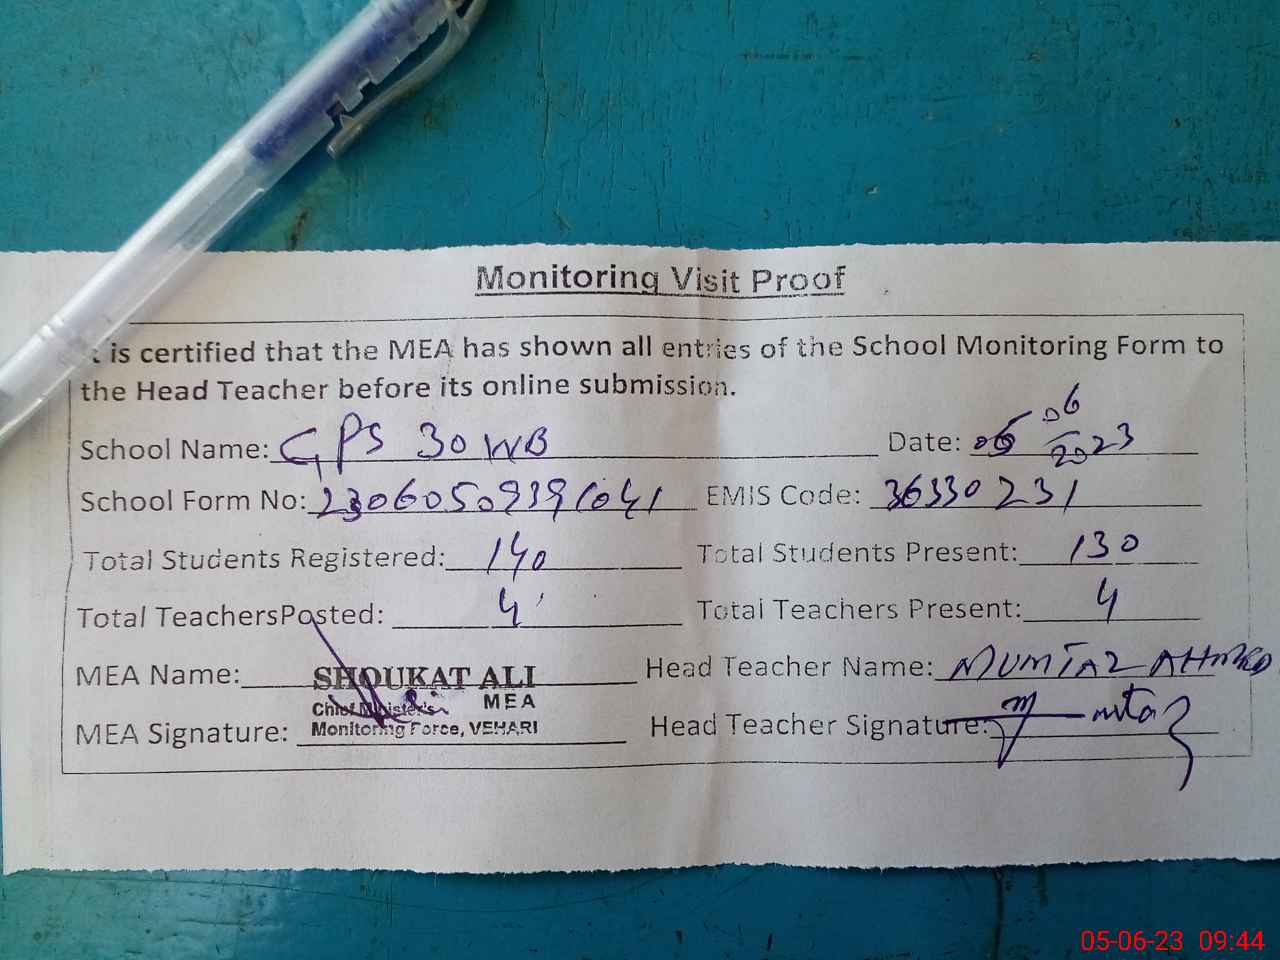 Monitoring Visit Proof
t is certified that the MEA has shown all entries of the School Monitoring Form to
the Head Teacher before its online submission.
School Name: GPS 30 WB Date: 06 2023
School Form No: 23060509391041 EMIS Code: 36330231
Total Students Registered: 140 Total Students Present: 130
Total TeachersPosted: 4 Total Teachers Present: 4
MEA Name: SHOUKAT ALI Head Teacher Name: MUMTAZ AHMED
Chief Minister's MEA
MEA Signature: Monitoring Force, VEHARI Head Teacher Signature:
05-06-23 09:44